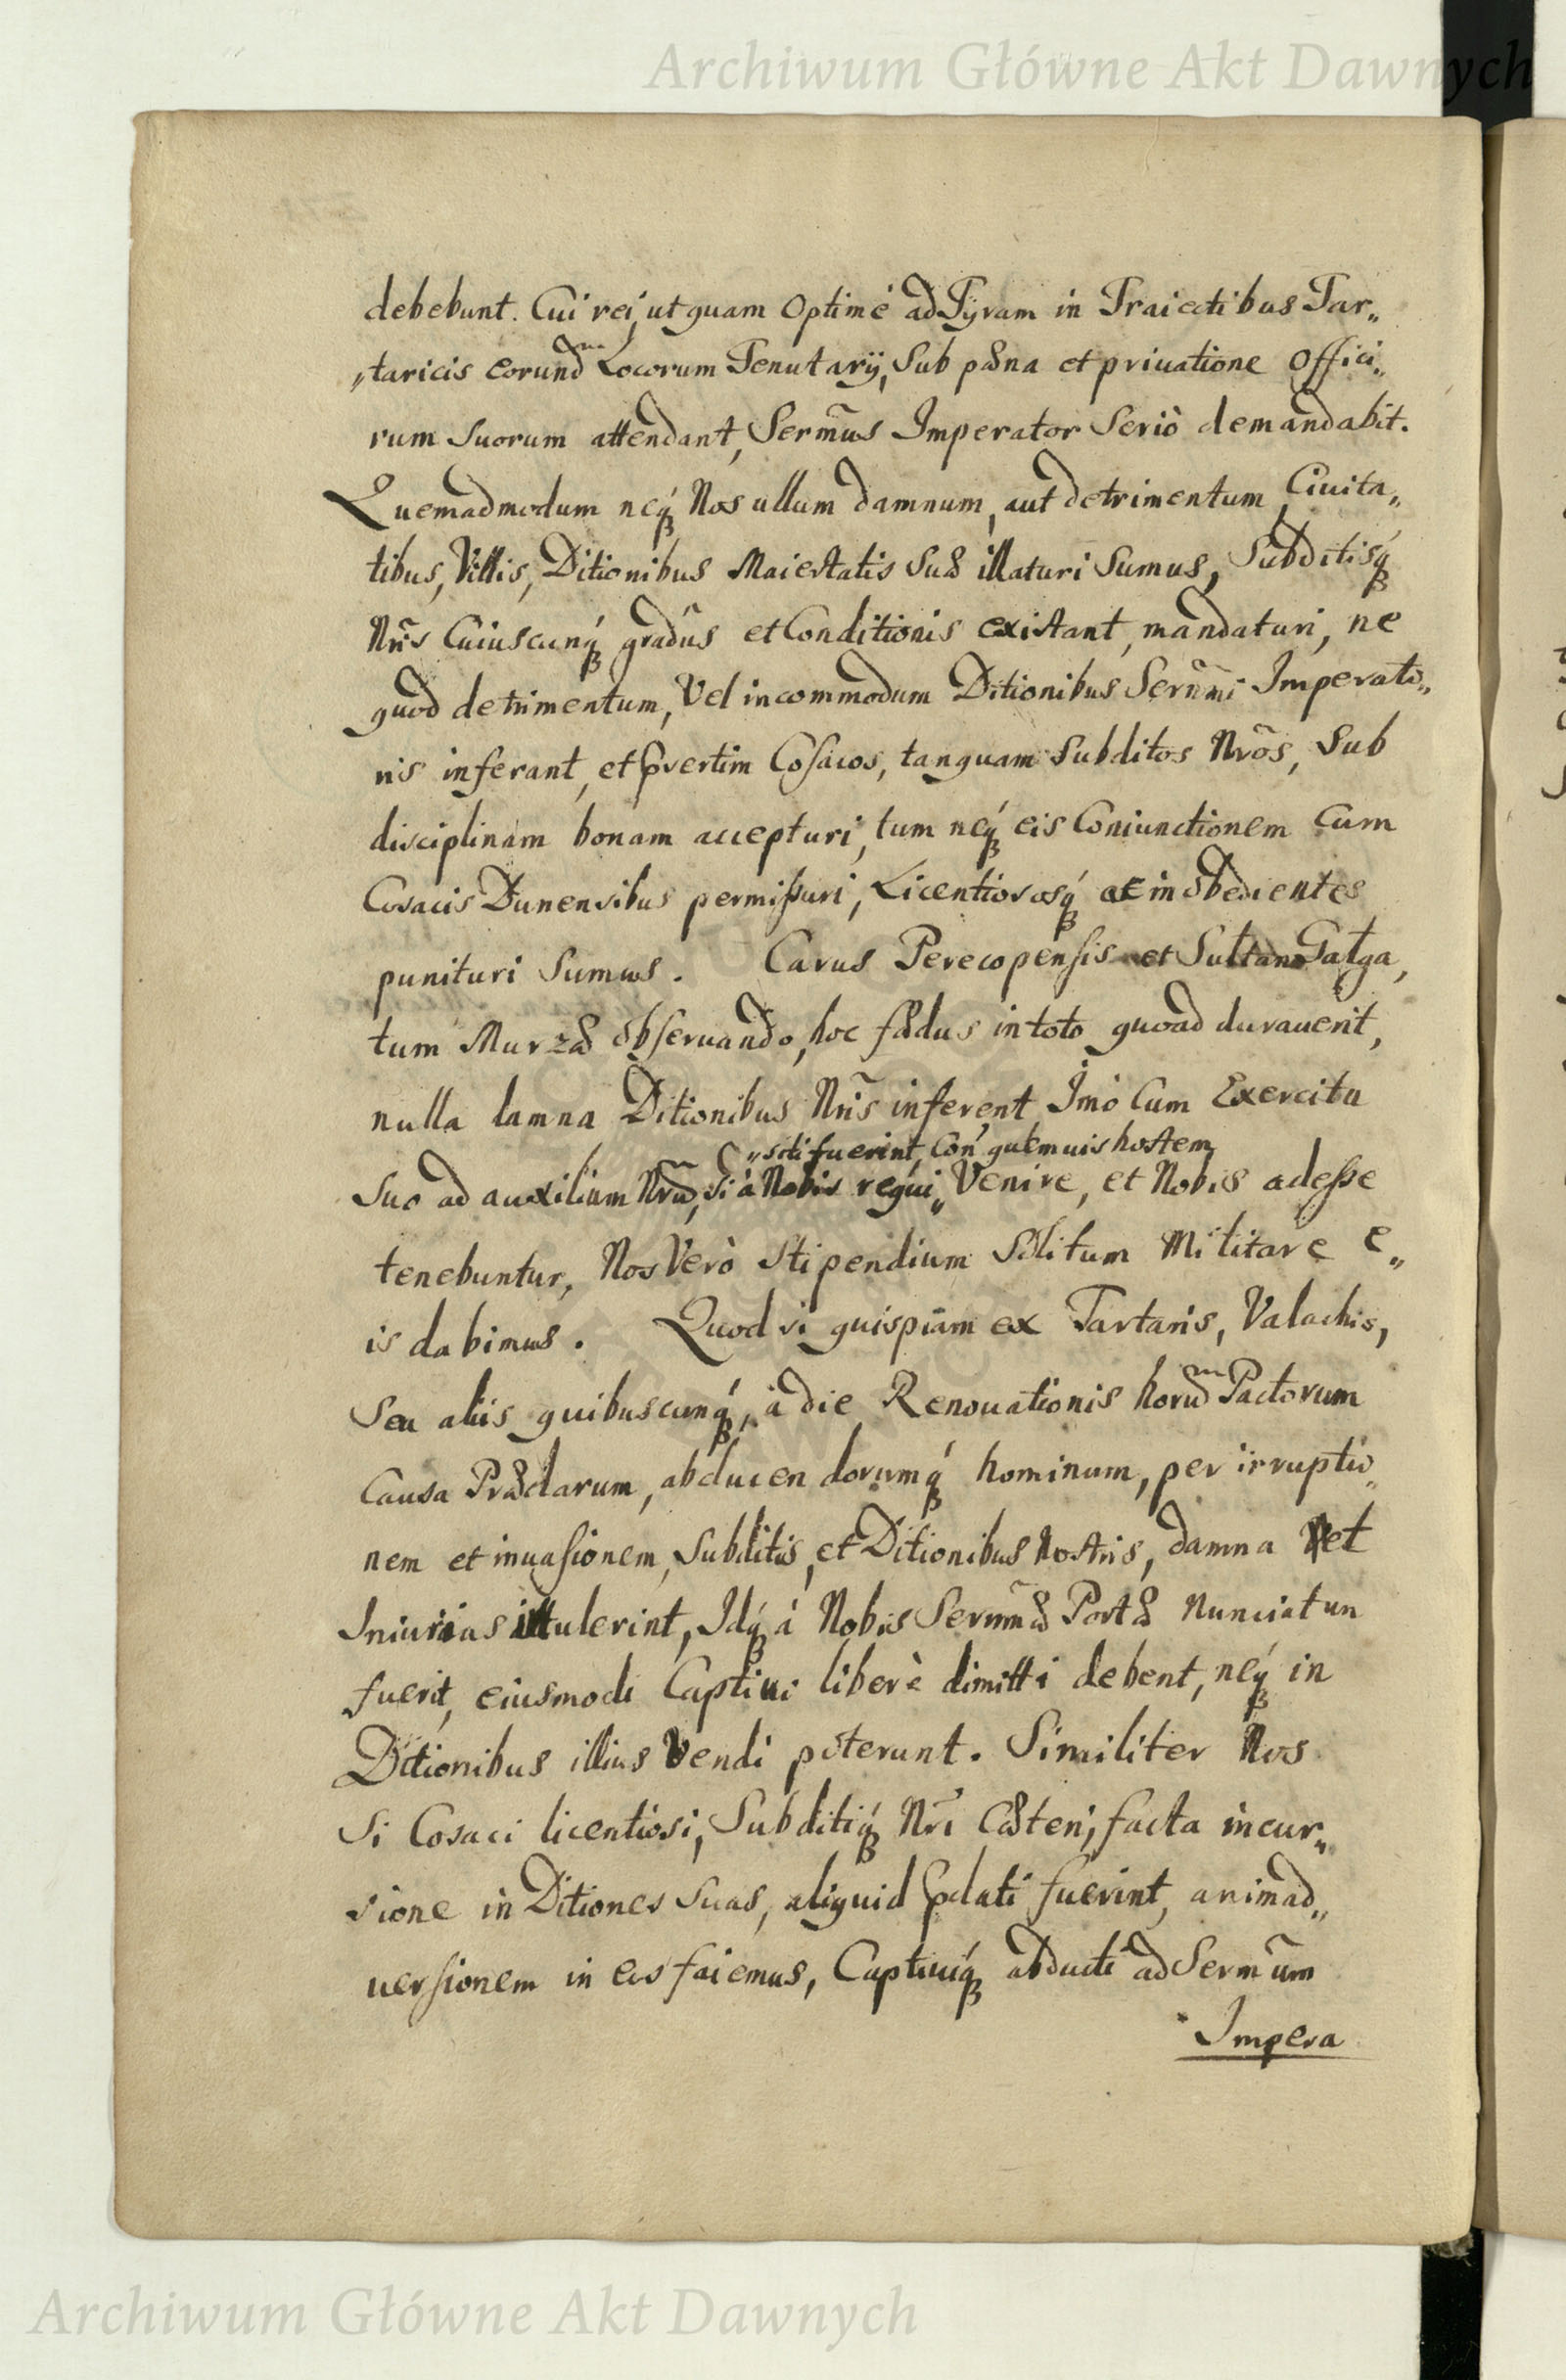 Archiwum Główne Akt Dawnych
debebunt. Cui rei, ut quam Optimè ad Tÿram in Traiectibus Tar„
„taricis eorundem Locorum Tenutarÿ, Sub pæna et priuatione Offici„
rum Suorum attendant, Sermũs Imperator Seriò demandabit.
Quemadmodum neq́ꝫ Nos ullum damnum, aut detrimentum, Ciuita„
tibus, Villis, Ditionibus Maiestatis Suæ illaturi Sumus, Subditisq́ꝫ
Nr̃is Cuiuscunq́ꝫ gradũs et Conditionis existant, mandaturi, ne
quod detrimentum, Vel incommodum Ditionibus Serm̃mi Imperato„
ris inferant, et p̃sertim Cosacos, tanquam Subditos Nr̃os, Sub
disciplinam bonam accepturi, tum neq́ꝫ eis Coniunctionem Cum
Cosacis Dunensibus permissuri, Licentiososq́ꝫ et inobedientes
punituri Sumus. Carus Perecopensis et Sultan Galga,
tum Murzæ obseruando, hoc fædus in toto quoad durauerit,
nulla damna Ditionibus Nr̃is inferent Imò Cum Exercitu
„siti fuerint, Con̉ quemuis hostem
Suo ad auxilium Nr̃um, si à Nobis requi„ Venire, et Nobis adesse
tenebuntur, Nos Verò Stipendium Solitum Militare e„
is dabimus. Quod si quispiam ex Tartaris, Valachis,
Seu aliis quibuscunq́ꝫ, à die Renouationis horum Pactorum
Causa Prædarum, abducendorumq́ꝫ hominum, per irruptio„
nem et inuasionem, Subditis, et Ditionibus Nostris, damna et
Iniurias intulerint, Idq́ꝫ à Nobis Serenm̃æ Portæ nunciatun
fuerit, eiusmodi Captiui liberè dimitti debent, neq́ꝫ in
Ditionibus illius Vendi poterunt. Similiter Nos
Si Cosaci licentiosi, Subditiq́ꝫ Nr̃i Cæteri, facta incur„
sione in Ditiones Suas, aliquid p̃dati fuerint, animad„
uersionem in eos faiemus, Captiuiq́ꝫ abducti ad Serm̃um
Impera
Archiwum Główne Akt Dawnych